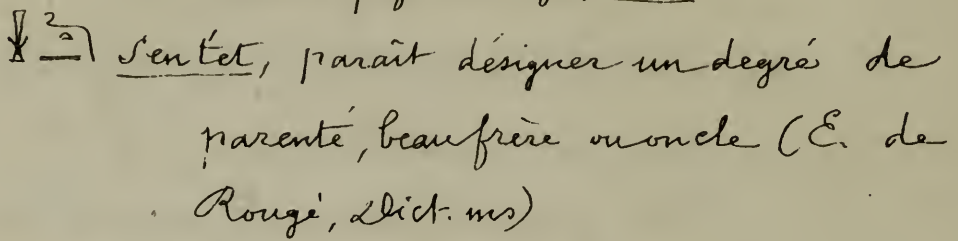 Sentet, paraît désigner un degré de
parenté, beau frère ou oncle (E. de
Rougé, Dict. ms)